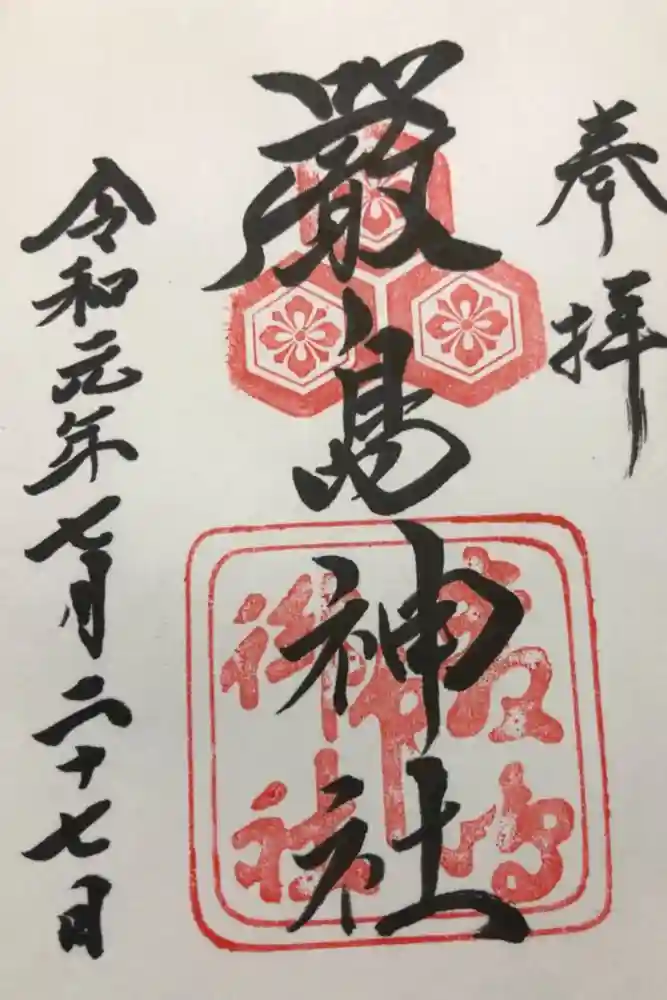 奉拝
厳島神社
令和元年七月二十七日